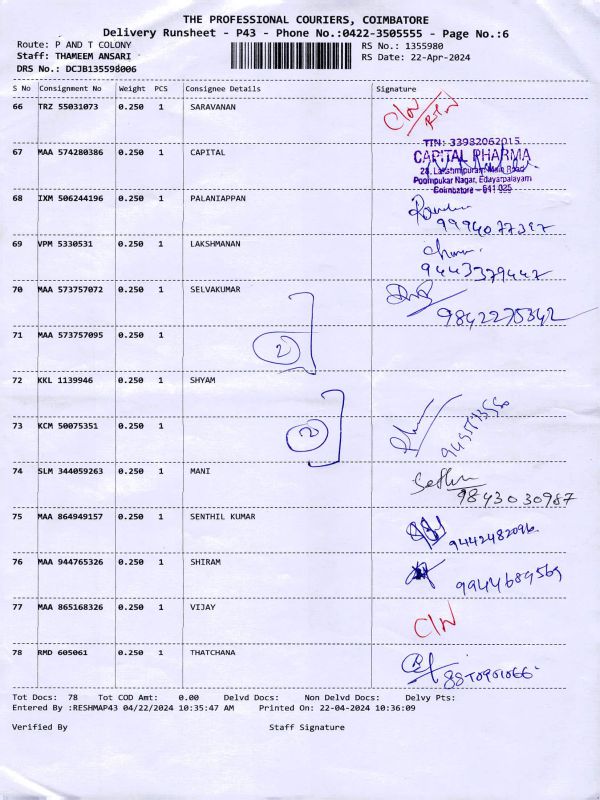 THE PROFESSIONAL COURIERS, COIMBATORE
Delivery Runsheet - P43 - Phone No.:0422-3505555 - Page No.:6
Route: P AND T COLONY RS No.: 1355980
Staff: THAMEEM ANSARI RS Date: 22-Apr-2024
DRS No.: DCJB135598006
S No Consignment No Weight PCS Consignee Details Signature
66 TRZ 55031073 0.250 1 SARAVANAN C/N
67 MAA 574280386 0.250 1 CAPITAL
TIN: 33982062015
CAPITAL PHARMA
28, Lakshmipuram Main Road
Poompukar Nagar, Edayarpalayam
Coimbatore - 641 025
68 IXM 506244196 0.250 1 PALANIAPPAN
69 VPM 5330531 0.250 1 LAKSHMANAN
9443379447
70 MAA 573757072 0.250 1 SELVAKUMAR
9842275342
71 MAA 573757095 0.250 1
2
72 KKL 1139946 0.250 1 SHYAM
73 KCM 50075351 0.250 1
2
74 SLM 344059263 0.250 1 MANI
9843030987
75 MAA 864949157 0.250 1 SENTHIL KUMAR
9442482096
76 MAA 944765326 0.250 1 SHIRAM
9944689569
77 MAA 865168326 0.250 1 VIJAY C/N
78 RMD 605061 0.250 1 THATCHANA
Tot Docs: 78 Tot COD Amt: 0.00 Delvd Docs: Non Delvd Docs: Delvy Pts:
Entered By :RESHMAP43 04/22/2024 10:35:47 AM Printed On: 22-04-2024 10:36:09
Verified By Staff Signature